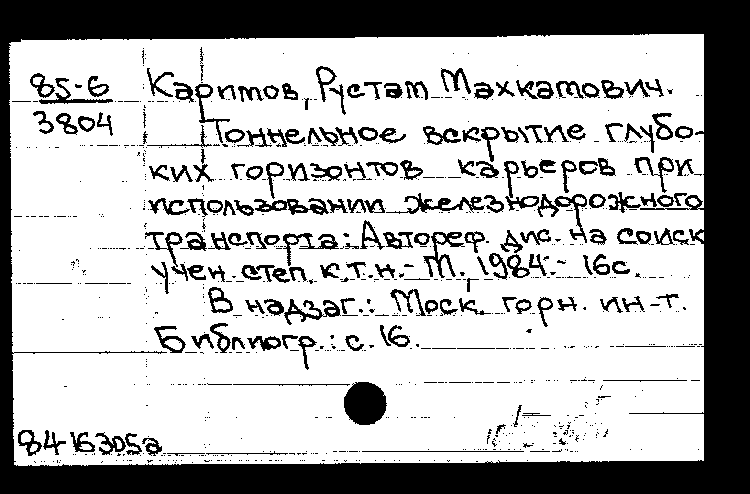 85-6 Каримов, Рустам Махкамович.
3804 Тоннельное вскрытие глубо-
ких горизонтов карьеров при
использовании железнодорожного
транспорта: Автореф. дис. на соиск
учен. степ. к.т.н.- М., 1984.- 16с.
В надзаг.: Моск. горн. ин-т.
Библиогр.: с. 16.
84-16305а